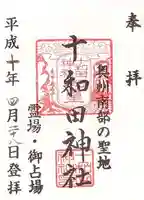 奉拝
奥州南部の聖地
十和田神社
霊場・御占場
平成十年四月二十八日登拝